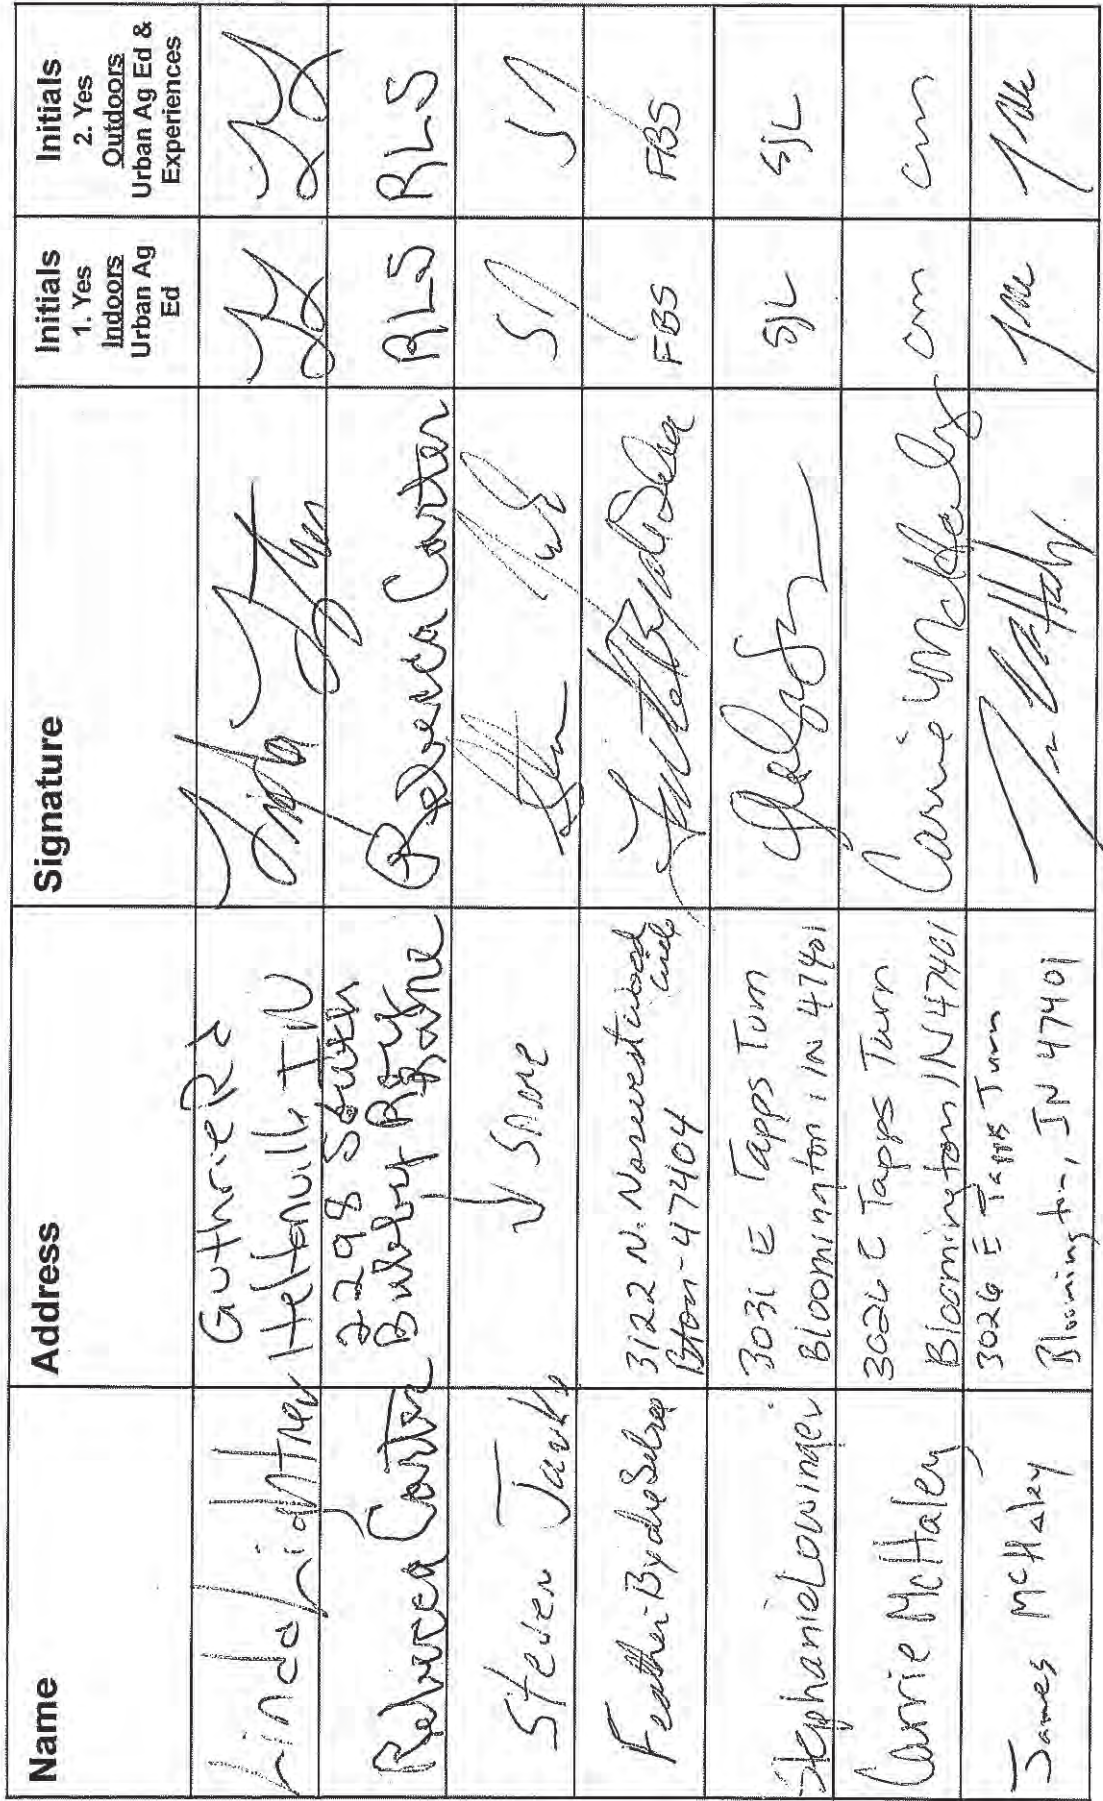 Name
Address
Signature
Initials
1. Yes
Indoors
Urban Ag
Ed
Initials
2. Yes
Outdoors
Urban Ag Ed &
Experiences
Linda Lightner
Guthrie Rd
Heltonville IN
Rebecca Carter
2298 South
Rebecca Carter
RLS
RLS
Steven
↓ same
SJ
SJ
3122 N.
Btown - 47404
FBS
FBS
Stephanie Lowinger
3031 E Tapps Turn
Bloomington IN 47401
SJL
SJL
Carrie McHaley
3026 E Tapps Turn
Bloomington IN 47401
Carrie McHaley
cm
cm
James McHaley
3026 E Tapps Turn
Bloomington, IN 47401